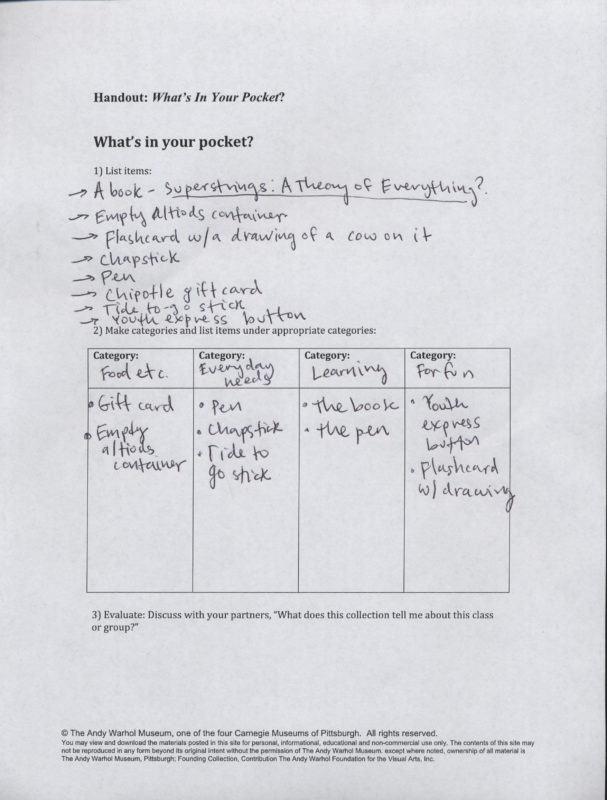 Handout: What's In Your Pocket?
What's in your pocket?
1) List items:
→ A book - Superstrings: A Theory of Everything?
→ Empty Altiods container
→ Flashcard w/a drawing of a cow on it
→ Chapstick
→ Pen
→ Chipotle gift card
→ Tide to-go stick
→ Youth express button
2) Make categories and list items under appropriate categories:
Category:
Food etc.
Category:
Everyday
needs
Category:
Learning
Category:
For fun
• Gift card
• Empty
altiods
container
• Pen
• Chapstick
• Tide to
go stick
• the book
• the pen
• Youth
express
button
• Flashcard
w/ drawing
3) Evaluate: Discuss with your partners, "What does this collection tell me about this class
or group?"
© The Andy Warhol Museum, one of the four Carnegie Museums of Pittsburgh. All rights reserved.
You may view and download the materials posted in this site for personal, informational, educational and non-commercial use only. The contents of this site may
not be reproduced in any form beyond its original intent without the permission of The Andy Warhol Museum. except where noted, ownership of all material is
The Andy Warhol Museum, Pittsburgh; Founding Collection, Contribution The Andy Warhol Foundation for the Visual Arts, Inc.